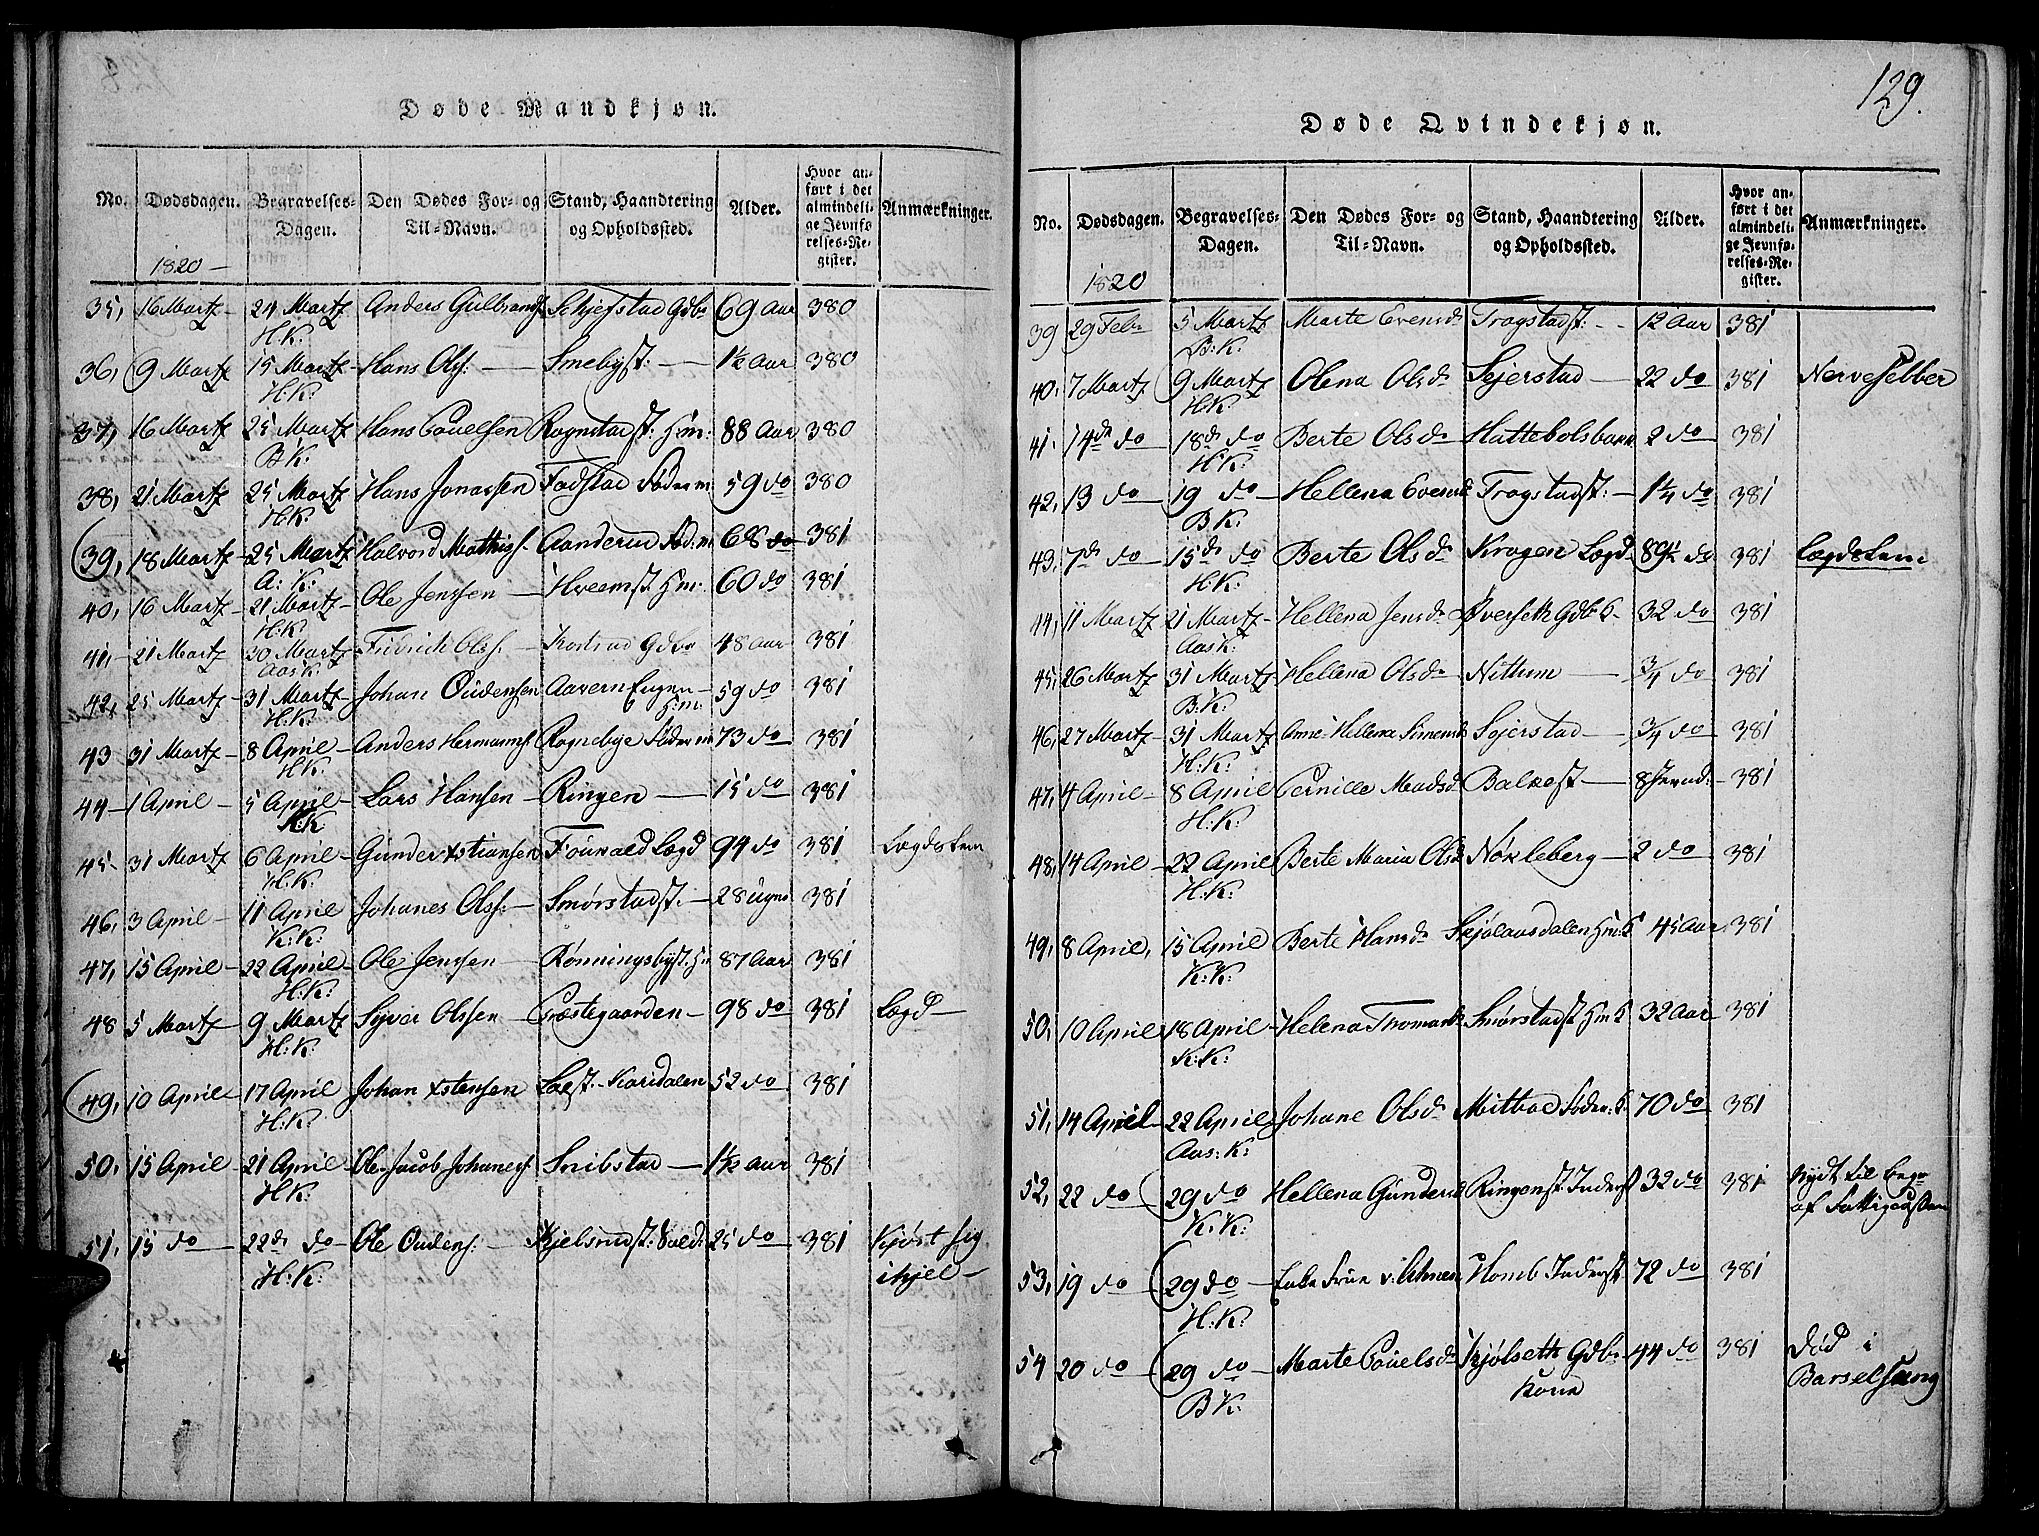 129.
Døde Mandkjøn.
No. Dødsdagen. Begravelses-Dagen. Den Dødes For- og Til-Navn. Stand, Haandtering og Opholdssted. Alder. Hvor anført i det almindelige Jevnførelses-Register. Anmærkninger.
1820
35, 16 Martz 24 Martz H.K. Anders Gulbrands. Schjefstad Gdbr 69 Aar 380
36, 9 Martz 15 Martz H.K. Hans Ols: Smebyst: 1½ Aar 380
37, 16 Martz 25 Martz B.K: Hans Povelsen Rognstadst: Hm: 88 Aar 380
38, 21 Martz 25 Martz H.K. Hans Jonassen Fadstad Føderm 59 do 380
39, 18 Martz 25 Martz A: K: Halvord Mathis. Aanderud Fød.m 68 do 381
40, 16 Martz 21 Martz H:K Ole Jenssen Hveemst Hm: 60 do 381
41, 21 Martz 20 Martz Aas K: Fridrich Ols. Gdbr 48 Aar 381
42, 25 Martz 31 Martz H:K: Johan Oudensen Aavern Eugen Hm: 59 do 381
43 31 Martz 8 April H.K: Anders Hermanns. Rognebye Føderm 73 do 381
44 1 April 5 April K:K Lars Hansen Ringen 15 do 381
45 31 Martz 6 April H.K. Gunder Xstiansen Lægd 94 do 381 Lægdslem
46, 3 April 11 April K.K: Johanes Ols: Smørstadst: 28 Uger 381
47, 15 April 22 April H:K: Ole Jenssen Rønningsbyst. Hm 87 Aar 381
48 5 Martz 9 Martz H:K: Syver Olssen Præstegaarden 98 do 381 Lægd
49, 10 April 17 April H:K: Johan Xstensen Karidalen 52 do 381
50, 15 April 21 April H:K: Ole Jacob Johanes. Snibstad 1½ Aar 381
51, 15 do 22de do H:K: Ole Oudens: Kjelsrudst: Sold: 25 do 381 Kjørt sig ihjel
Døde Qvindekjøn.
No. Dødsdagen. Begravelses-Dagen. Den Dødes For- og Til-Navn. Stand, Haandtering og Opholdssted. Alder. Hvor anført i det almindelige Jevnførelses-Register. Anmærkninger.
1820
39 29 Febr 5 Martz B:K: Marte Evensd. Trogstadst: 12 Aar 381
40, 7 Martz 9 Martz H:K: Olena Olsdr Sejerstad 22 do 381 Nervefeber
41, 14de do 18de do H:K: Berte Olsdr Hattebolsbakk 2 do 381
42, 13 do 19 do B.K: Hellena Evensd Trogstadst: 1¼ do 381
43, 7de do 15de do H:K: Berte Olsdr Krogen Lægd 89½ do 381 Lægdslem
44, 11 Martz 21 Martz Aas K: Hellena Jensdr Øverseth Gdb: K. 32 do 381
45, 26 Martz 31 Martz B:K: Hellena Olsdr Nithun ¾ do 381
46, 27 Martz 31 Martz H:K: Anne Hellena Simensd Sejerstad ¾ do 381
47, 4 April 8 April H:K: Pernille Madsd. 8 381
48, 14 April 22 April H:K: Berte Maria Olsd Nøkleberg 2 do 381
49, 8 April, 15 April K:K: Berte Hansdr Skjølaasdalen Hm: K 45 Aar 381
50, 10 April 18 April K:K: Helena Thomasd Smørstadst Hm K 32 Aar 381
51, 14 April 22 April Aas: K: Johane Olsdr Mitbøe Føder: K 70 do 381
52, 22 do 29 do K:K: Hellena Gundersd Ringenst. Inderst 32 do 381 Nydt til af Fattigcassen
53, 19 do 29 do H:K: Enke Frue v: Homb Inderst 72 do 381
54 20 do 29 do B:K: Marte Povelsdr Kjølseth Gdbr Kone 44 do 381 Død i Barselseng